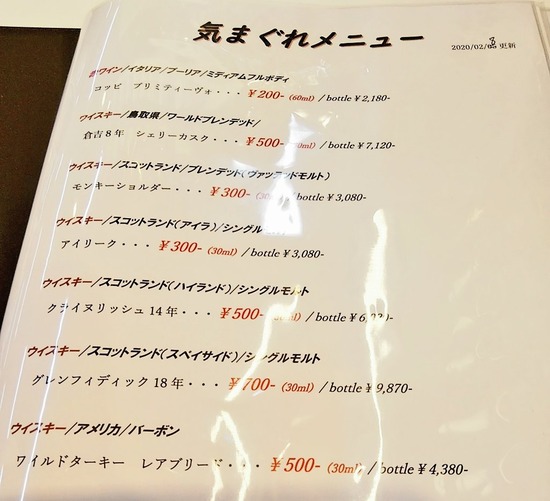 気まぐれメニュー
2020/02/08 更新
赤ワイン/イタリア/プーリア/ミディアムフルボディ
コッピ プリミティーヴォ・・・¥200-(60ml) / bottle ¥2,180-
ウイスキー/鳥取県/ワールドブレンデッド/
倉吉8年 シェリーカスク・・・¥500- / bottle ¥7,120-
ウイスキー/スコットランド/ブレンデッド(ヴァッテッドモルト)
モンキーショルダー・・・¥300- / bottle ¥3,080-
ウイスキー/スコットランド(アイラ)/シングル
アイリーク・・・¥300-(30ml) / bottle ¥3,080-
ウイスキー/スコットランド(ハイランド)/シングルモルト
クライヌリッシュ14年・・・¥500- / bottle
ウイスキー/スコットランド(スペイサイド)/シングルモルト
グレンフィディック18年・・・¥700-(30ml) / bottle ¥9,870-
ウイスキー/アメリカ/バーボン
ワイルドターキー レアブリード・・・¥500-(30ml) / bottle ¥4,380-